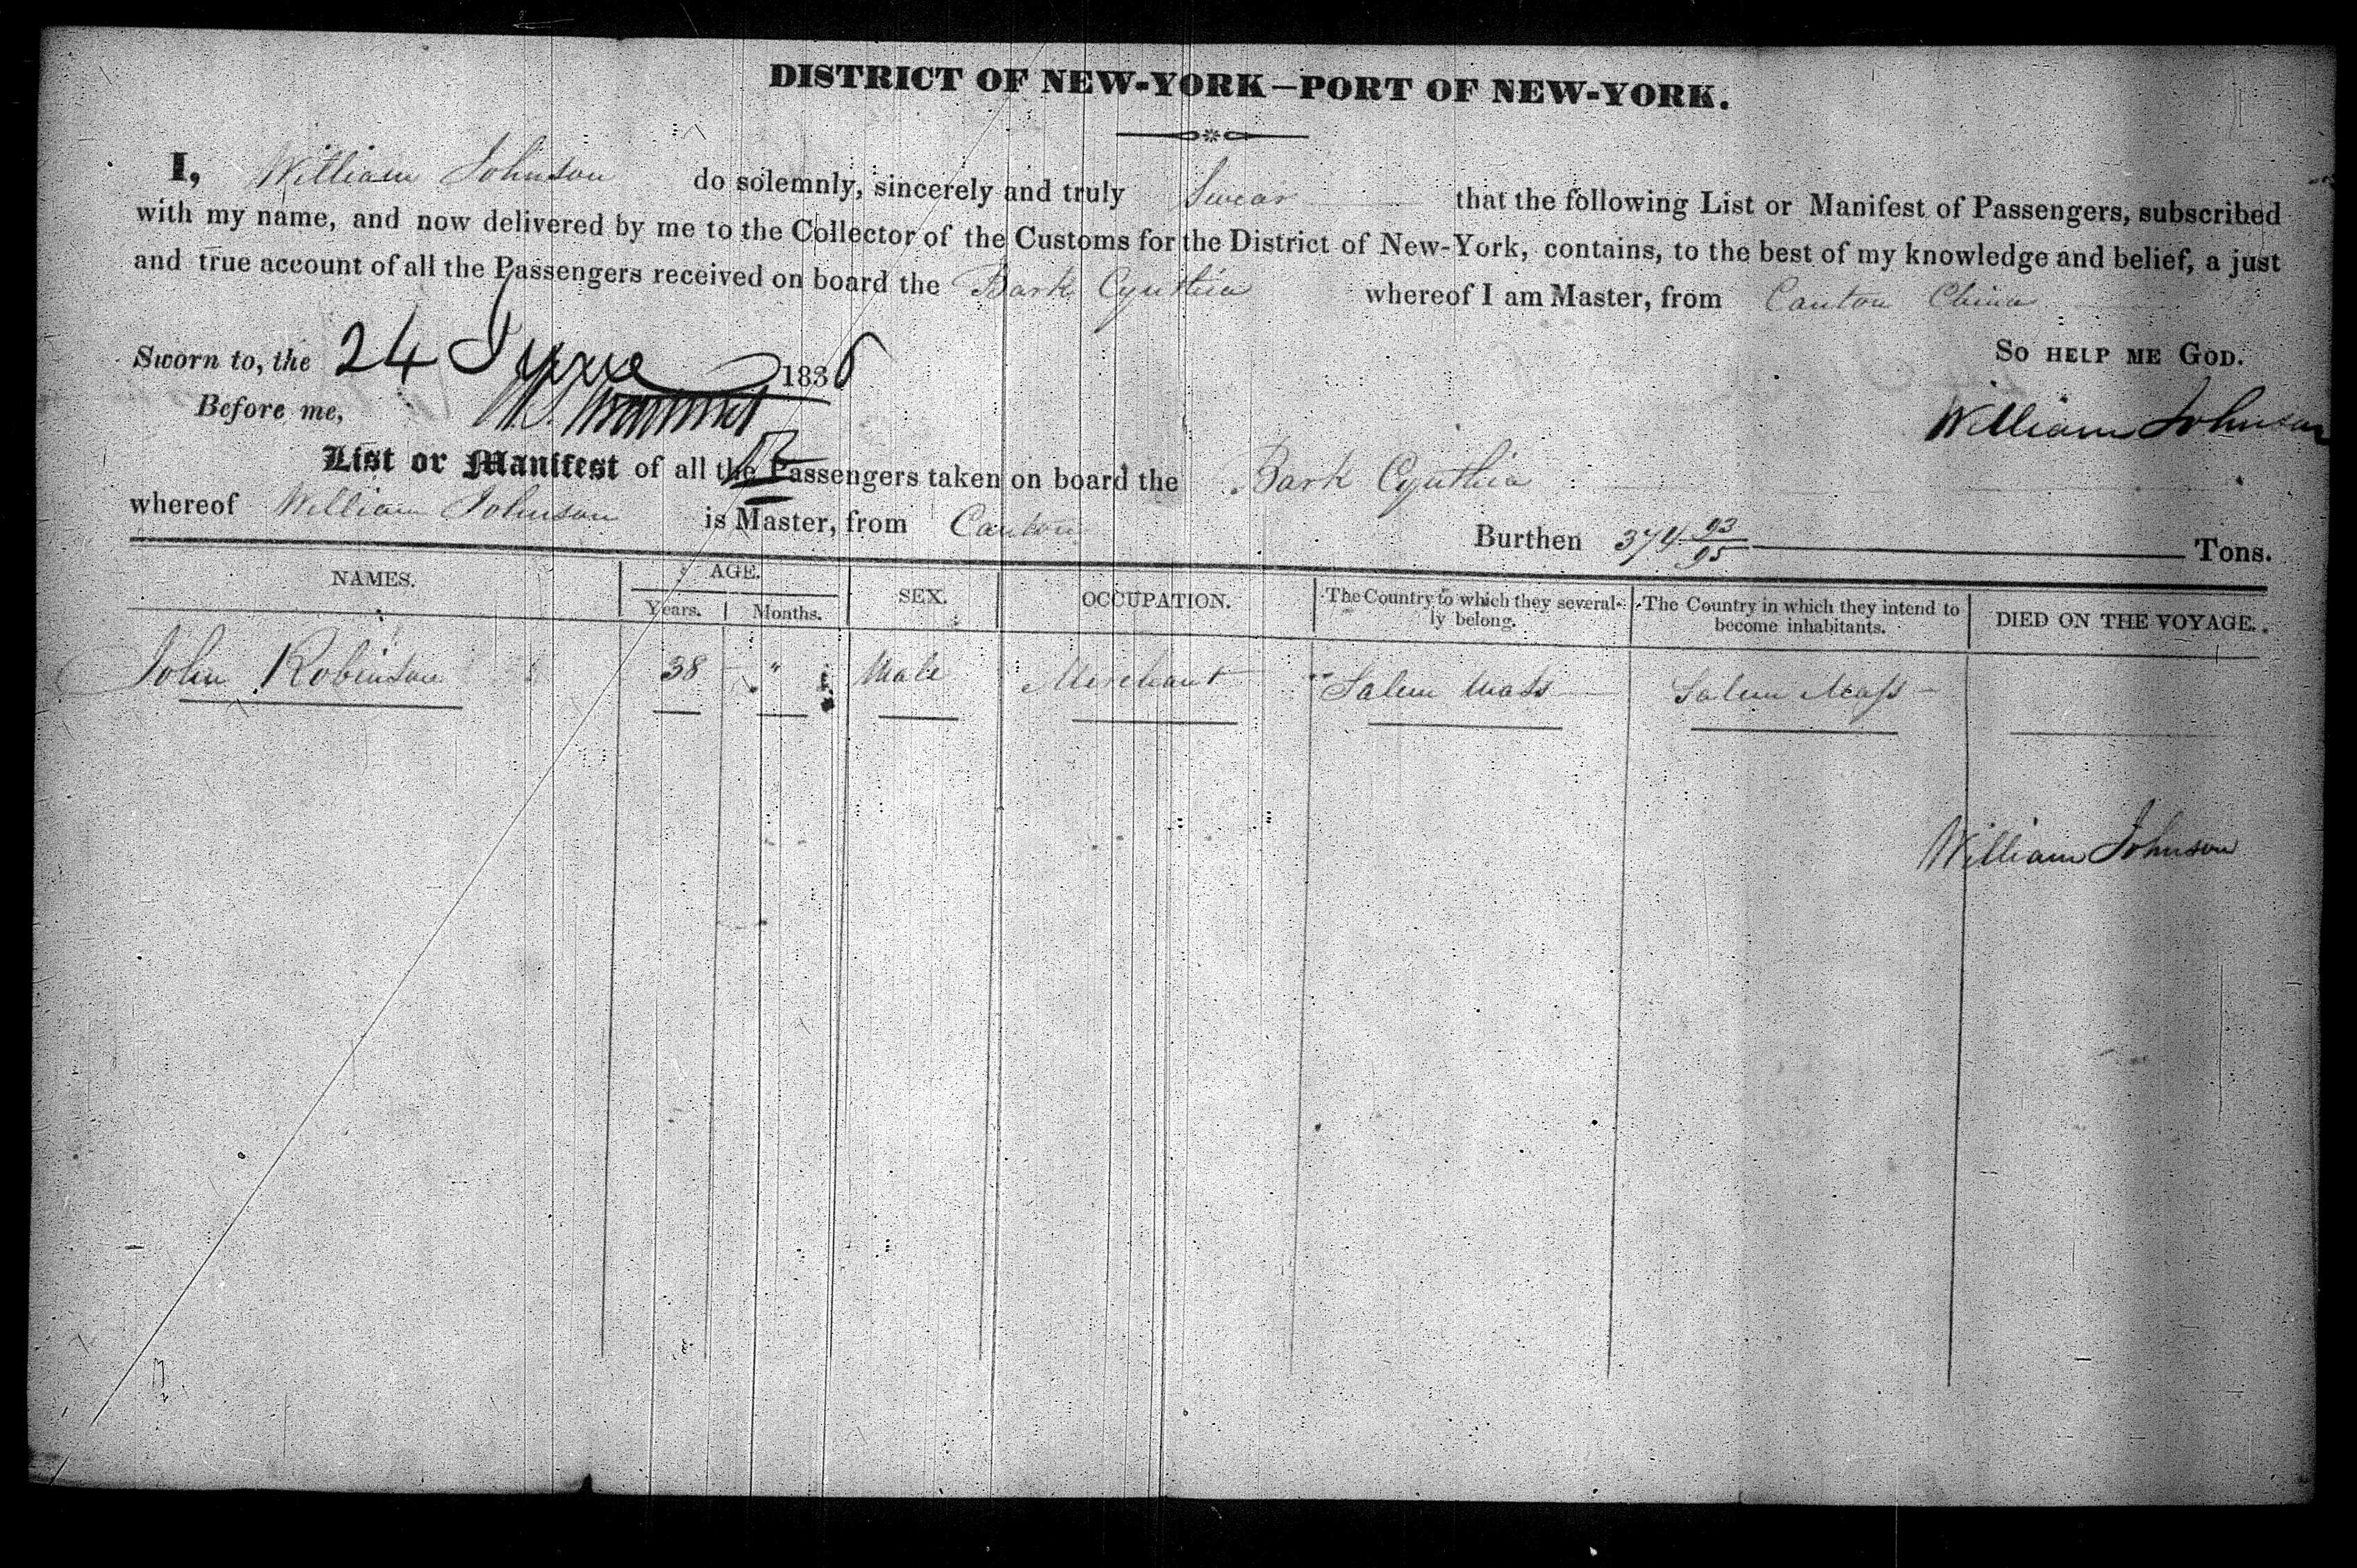 DISTRICT OF NEW-YORK—PORT OF NEW-YORK.
I, William Johnson do solemnly, sincerely and truly Swear that the following List or Manifest of Passengers, subscribed
with my name, and now delivered by me to the Collector of the Customs for the District of New-York, contains, to the best of my knowledge and belief, a just
and true account of all the Passengers received on board the Bark Cynthia whereof I am Master, from Canton China
So HELP ME GOD.
Sworn to, the 24 June 183
Before me,
William Johnson
List or Manifest of all the Passengers taken on board the Bark Cynthia
whereof William Johnson is Master, from Canton Burthen 374 93/95 Tons.
NAMES. AGE. SEX. OCCUPATION. The Country to which they several- The Country in which they intend to DIED ON THE VOYAGE.
Years. Months. ly belong. become inhabitants.
John Robinson 38 " Male Merchant Salem Mass Salem Mass
William Johnson